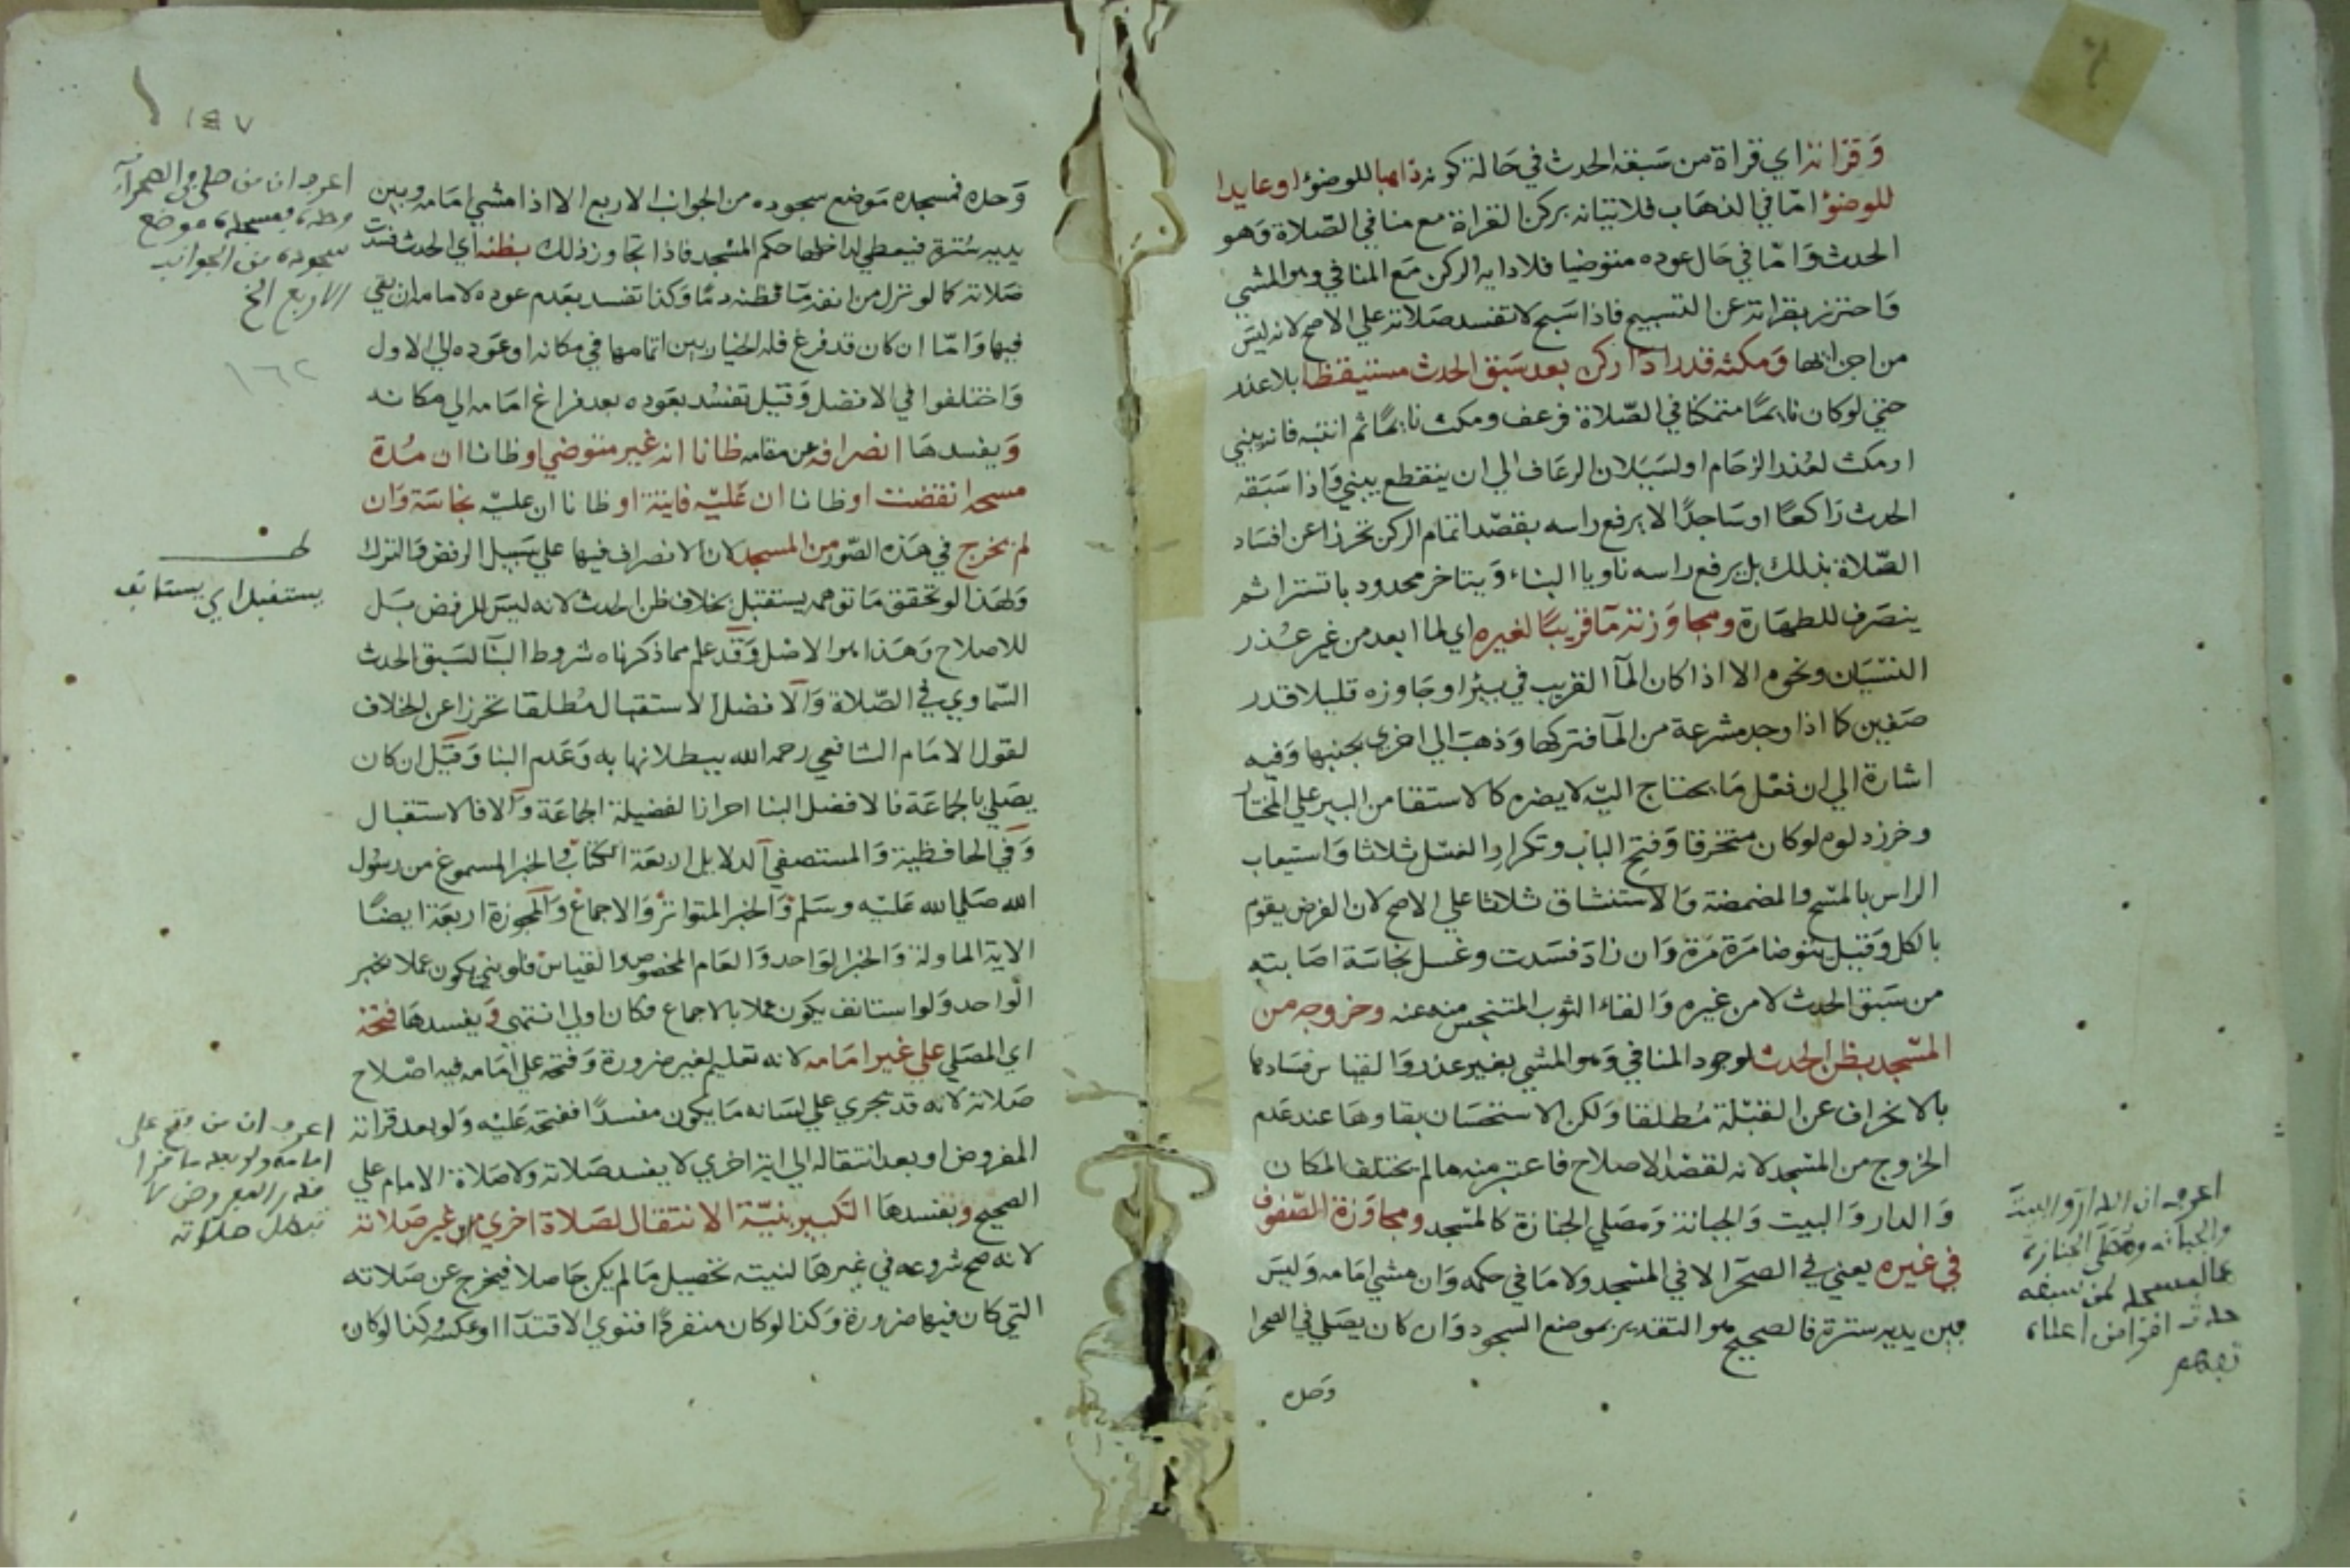 وَقراته اي قراة من سَبقه الحدث في حَالة كونه ذاهبا للوضوُ او عايدا
للوضوُ امّا في الذهَاب فلاتيانه بركن القراة مع منافي الصّلاة وَهو
الحدث وَامّا في حَال عوده متوضيا فلادايه الركن مَع المنافي وهو المشي
وَاحترز بقراته عن التسبيح فاذا سَبح لا تفسد صَلاته علي الاصح لانه ليسَ
من اجزائها وَمكثه قدر اداء ركن بعد سَبق الحدث مستيقظا بلا عذر
حتي لوكان نايمًا متمكنا في الصّلاة فرعف ومكث نايمًا ثم انتبه فانه يبني
او مكث لعُذر الزحَام او لسَيَلان الرعَاف الي ان ينقطع يبني وَاذا سَبَقه
الحدث رَاكعًا او سَاجدًا لا يرفع راسه بقصْد اتمام الركن تحرزا عن افسَاد
الصّلاة بذلك بل يرفع راسه ناويا البناء وَيتاخر محدود با تسترا ثم
ينصَرف للطهَارة ومجاوَزته مَآ قريبًا لغيره اي لما ابعد من غير عُذر
النسْيَان ونحوه الا اذا كان المآ القريب في بيْر او جَاوزه قليلا قدر
صَفين كما اذا وجد مشرعة من المآ فتركها وَذهبَ الي اخري بجنبها وَفيه
اشارة الي ان فعْل مَا يحتاج اليْه لا يضره كالاستقا من البير علي المختار
وخرز دلوه لوكان متخرقا وَفتح الباب وتكرار الغسْل ثلاثا وَاستيعاب
الراس بالمسْح والمضمضة وَالاستنشاق ثلاثا علي الاصح لان الفرض يقوم
بالكل وَقيل يتوضا مَرة مَرة وَان زادَ فسَدت وغسل نجاسَة اصَابته
من سَبق الحدث لا من غيره وَالقاء الثوب المتنجس منه عنه وخروجه من
المسْجد بظن الحدث لوجود المنافي وَهو المشي بغير عذر وَالقياس فسَادها
بالانحراف عن القبْلة مُطلقا وَلكن الاستحسَان بقاوهَا عند عَدم
الخروج من المسْجد لانه لقصْد الاصلاح فاعتبر منه ما لم يختلف المكان
وَالدار وَالبيت وَالجبانة وَمصَلي الجنازة كالمسْجد ومجاوَزة الصّفوف
في غيره يعني في الصحرآ لا في المسْجد ولا مَا في حكمه وَان مشي امَامه وَليسَ
بين يديه سترة فالصحيح هو التقدير بموضع السجود وَان كان يصَلي في الصحرا
وَحده
اعرف ان الدار والبيت
والجبانة ومُصَلّي الجنازة
كالمسجد لمن سبقه
حدث
١٤٧
وَحده فمسجده مَوضع سجوده من الجوانب الاربع الا اذا مشي امَامه وبين
يديه سُترة فيعطي لداخلها حكم المسْجد فاذا تجاوز ذلك بظنه اي الحدث فسَدت
صَلاته كما لو نزل من انفه مَا فظنه دمًا وَكذا تفسد بعَدم عوده لامامه ان بقي
فيها وَامّا ان كان قد فرغ فله الخيار بين اتمامها في مكانه او عَوده الي الاول
وَاختلفوا في الافضل وَقيل تفسُد بعَوده بعد فراغ امَامه الي مكانه
وَيفسدهَا انصرافه عن مقامه ظانا انه غير متوضي او ظانا ان مُدة
مسحه انقضت او ظانا ان عَليْه فايتة او ظانا ان عليْه نجاسَة وَان
لم يخرج في هَذه الصّور من المسجد لان الانصراف فيها علي سَبيل الرفض وَالترك
وَلهَذا لو تحقق مَا توهمه يستقبل بخلاف ظن الحدث لانه ليسَ للرفض بَل
للاصلاح وَهَذا هو الاصْل وَقد علم مما ذكرناه شروط البنآ لسَبق الحدث
السّماوي في الصّلاة وَالافضل الاستقبال مُطلقا تحرزا عن الخلاف
لقول الامَام الشافعي رحمه الله ببطلانها به وَعَدم البنا وَقيل ان كان
يصَلي بالجماعَة فالافضل البنا احرازا لفضيلة الجماعَة وَالا فالاستقبال
وَفي الحافظية وَالمستصفي الدلايل اربعَة الكتاب وَالخبر المسموع من رسُول
الله صَلي الله عَليْه وسَلم وَالخبر المتواتر وَالاجماع وَالمجوزة اربعَة ايضًا
الاية الماولة وَالخبر الوَاحد وَالعَام المخصوص والقياس فلو بني يكون عملا بخبر
الوَاحد وَلو استانف يكون عملا بالاجماع فكان اولي انتهي وَيفسدهَا فتحه
اي المصَلي علي غير امَامه لانه تعليم لغير ضرورة وَفتحه علي امَامه فيه اصْلاح
صَلاته لانه قد يجري علي لسَانه مَا يكون مفسدًا ففتحه عَليْه وَلو بعد قراته
المفروض او بعد انتقاله الي اية اخري لا يفسد صَلاته ولا صَلاة الامام علي
الصحيح وَيفسدهَا التكبير بنيّة الانتقال لصَلاة اخري من غير صَلاته
لانه صح شروعه في غيرهَا لنيته تحصيل مَا لم يكن حَاصلا فيخرج عن صَلاته
التي كان فيها ضرورة وَكذا لو كان منفردًا فنوي الاقتدآ او عكسه وَكذا لو كان
اعرف ان من صلي في الصحرآء
وحده فمسجده موضع
سجوده من الجوانب
الاربع الخ
١٦٢
يستقبل اي يستانف
اعرف ان من فتح علي
امامه ولو بعد ما قرا
قدر المفروض لا
تبطل صلاته